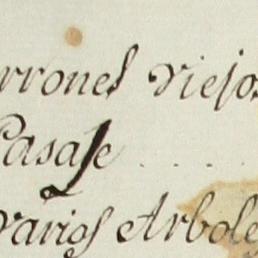 rrones viejos
Pasaje . . . .
varios Arbole